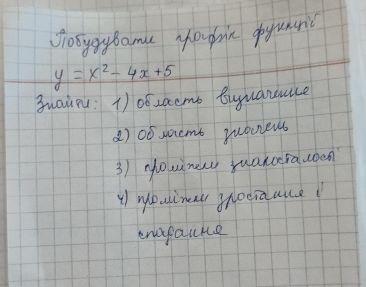 Побудувати графік функції
y = x² - 4x + 5
Знайти: 1) область визначення
2) область значень
3) проміжки знакосталості
4) проміжки зростання і
спадання